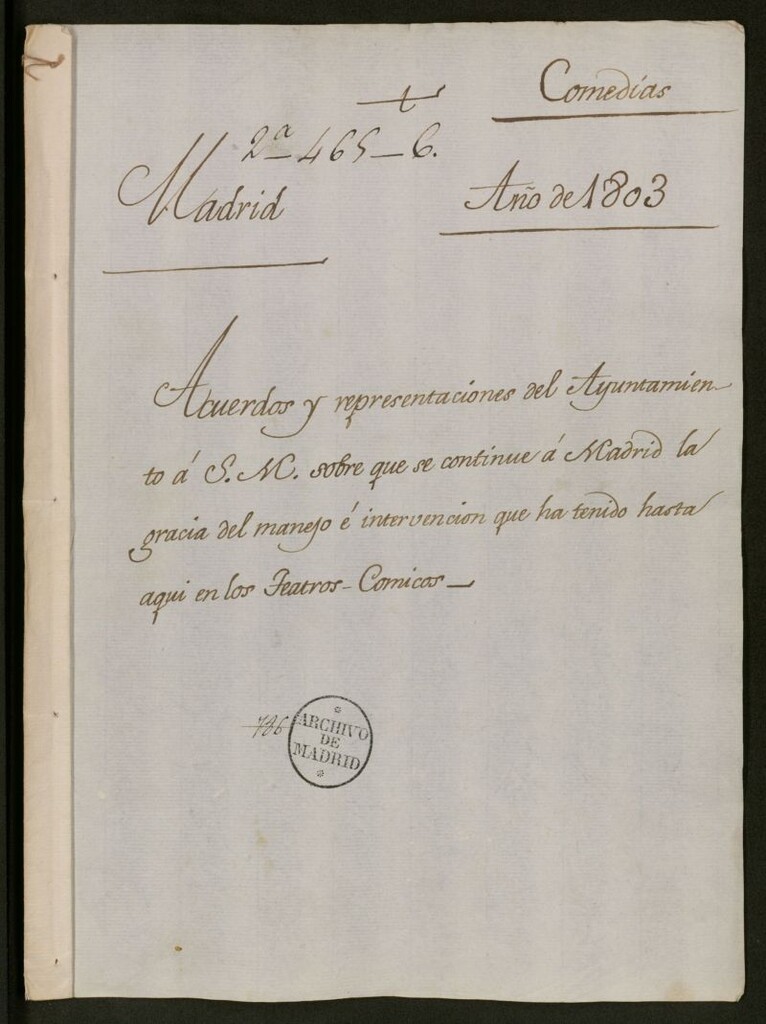 Comedias
2ª-465-6.
Madrid
Año de 1803
Acuerdos y representaciones del Ayuntamien-
to á S. M. sobre que se continue á Madrid la
gracia del manejo é intervencion que ha tenido hasta
aqui en los Teatros-Comicos-
786
ARCHIVO
DE
MADRID